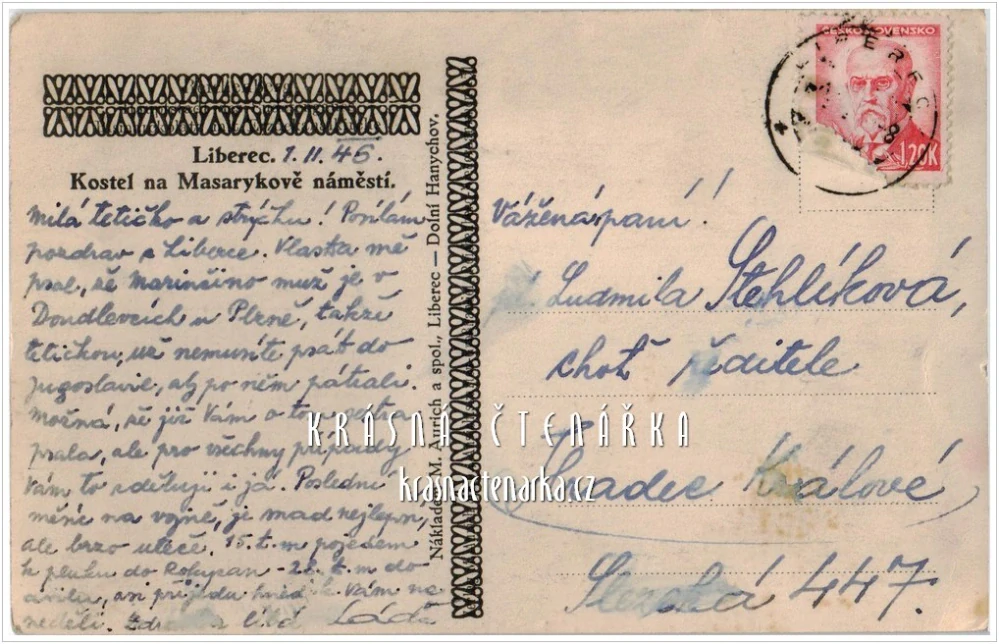 ČESKOSLOVENSKO
LIBEREC
1.20K
Liberec. 1.II.46.
Kostel na Masarykově náměstí.
Milá tetičko a strýčku! Posílám
pozdrav z Liberce. Vlastka mě
psal, že Marinčino muž je v
Doudlevcích u Plzně, takže
tetičkou, už nemusíte psát do
Jugoslavie, aby po něm pátrali.
Možná, že již Vám o tom sestra
psala, ale pro všechny případy
Vám to sděluji i já. Poslední
měsíc na vojně, je snad nejlepší,
ale brzo uteče. 15.t.m pojedem
k pluku do Rokycan - 28.t.m do
civilu, asi přijedu hned k Vám na
neděli. Láďa
Nákladem M. Aurich a spol., Liberec — Dolní Hanychov.
Vážená paní!
Ludmila Stehlíková,
choť ředitele
Hradec Králové
Slezská 447.
KRÁSNÁ ČTENÁŘKA
krasnactenarka.cz